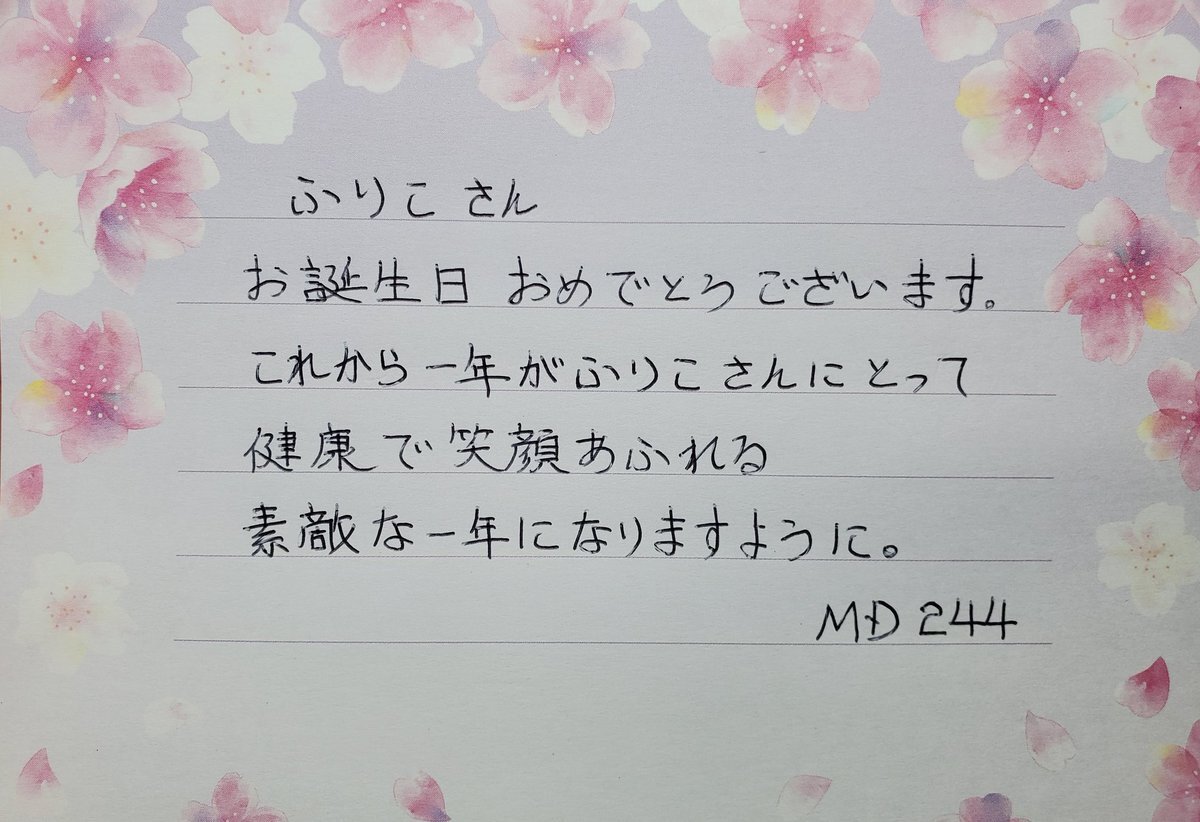 ふりこさん
お誕生日 おめでとうございます。
これから一年がふりこさんにとって
健康で笑顔あふれる
素敵な一年になりますように。
MD244